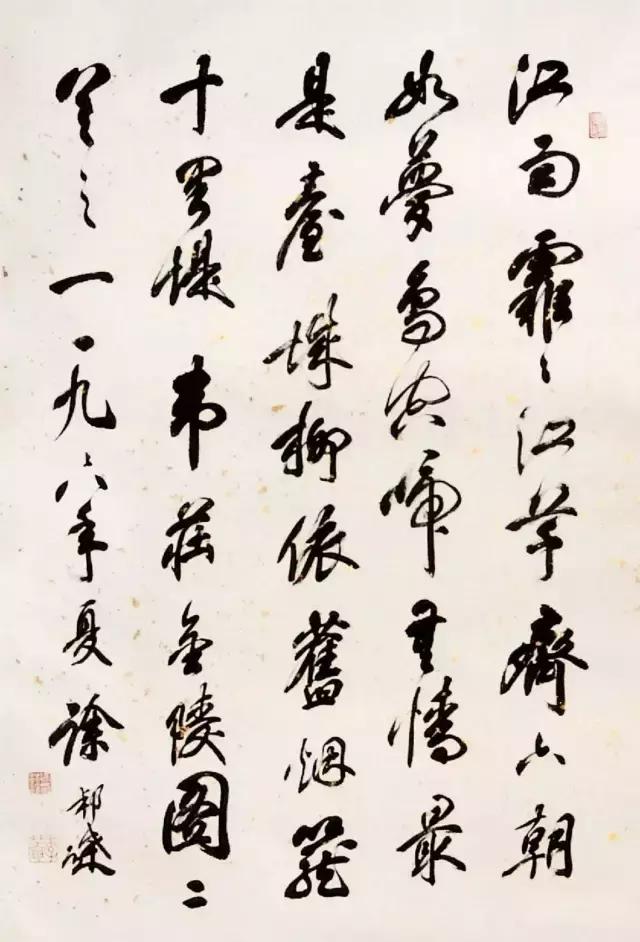 江雨霏〻江草齊六朝
如夢鳥空啼無情最
是臺城柳依舊烟籠
十里堤 韋莊金陵圖二
首之一 一九六年夏 徐